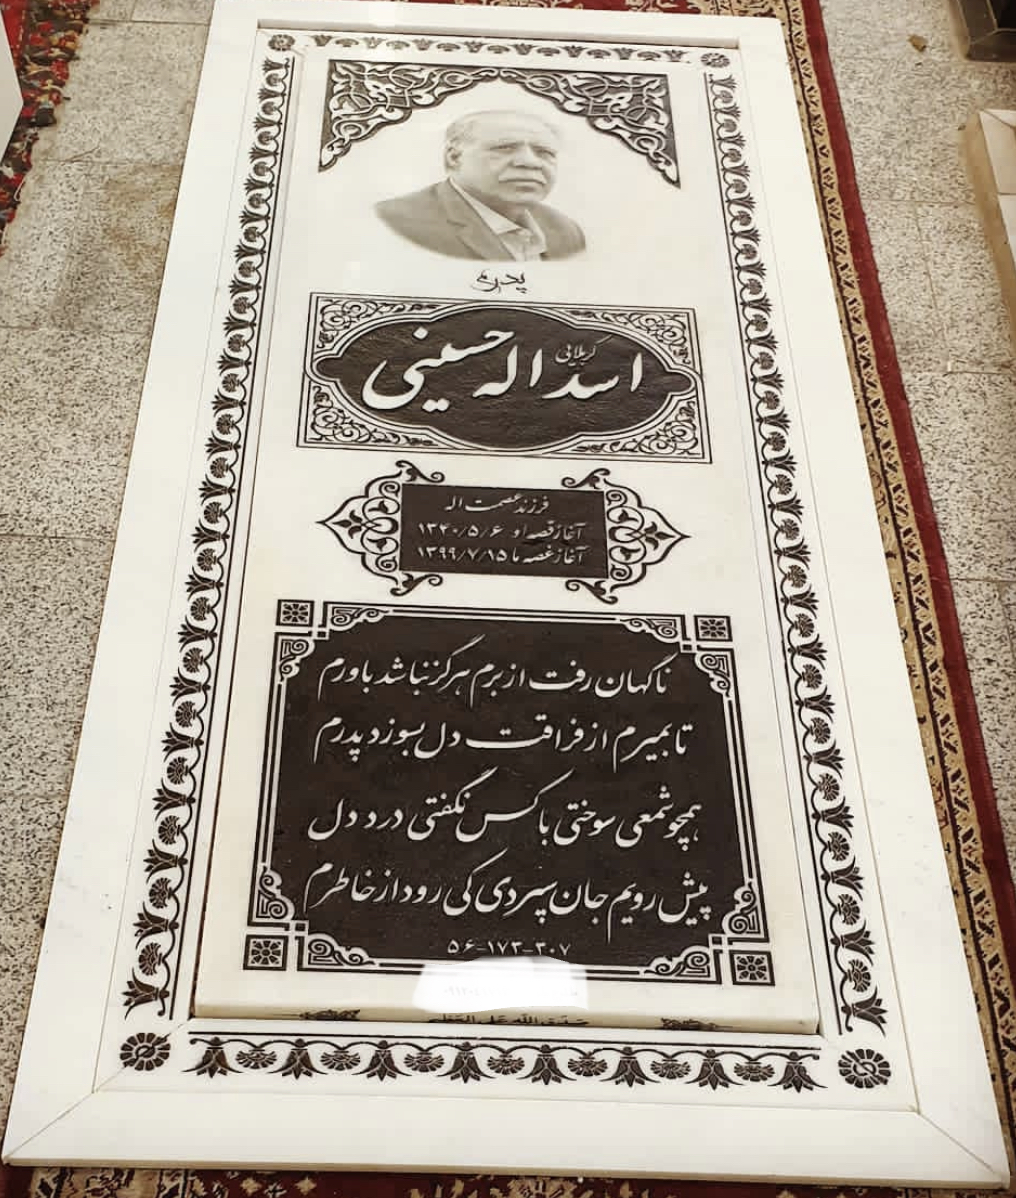 پدرم
کربلایی
اسداله حسینی
فرزند عصمت اله
آغاز قصه او ۱۳۴۰/۵/۶
آغاز غصه ما ۱۳۹۹/۷/۱۵
ناگهان رفت از برم هرگز نباشد باورم
تا بمیرم از فراقت دل بسوزد پدرم
همچو شمعی سوختی با کس نگفتی درد دل
پیش رویم جان سپردی کی رود از خاطرم
۵۶-۱۷۳-۳۰۷
صدق الله علی العظیم